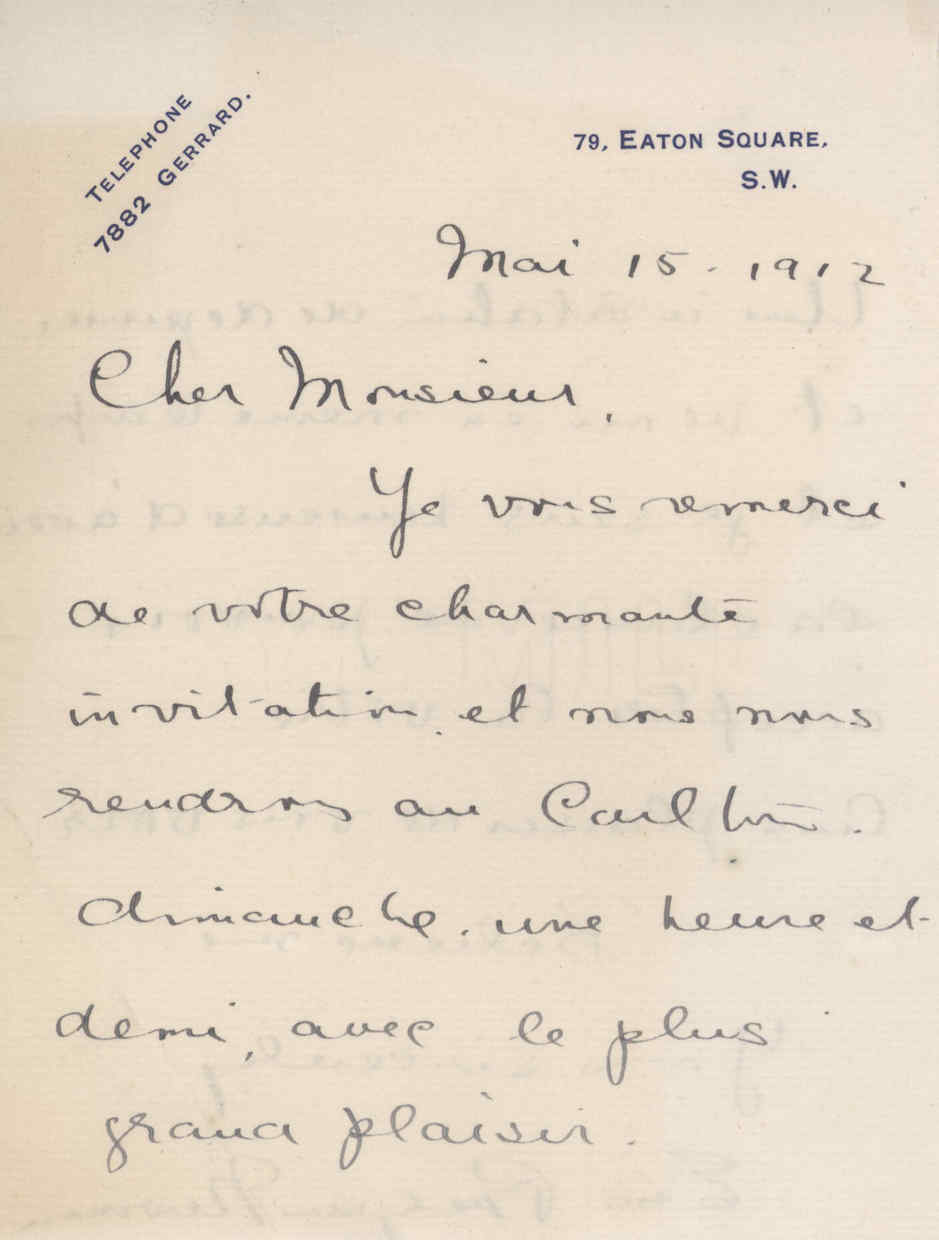 TELEPHONE
7882 GERRARD.
79, EATON SQUARE.
S.W.
Mai 15. 1912
Cher Monsieur,
Je vous remerci
de votre charmante
invitation et nous nous
rendrons au Carlton.
dimanche. une heure et
demi, avec le plus
grand plaisir.